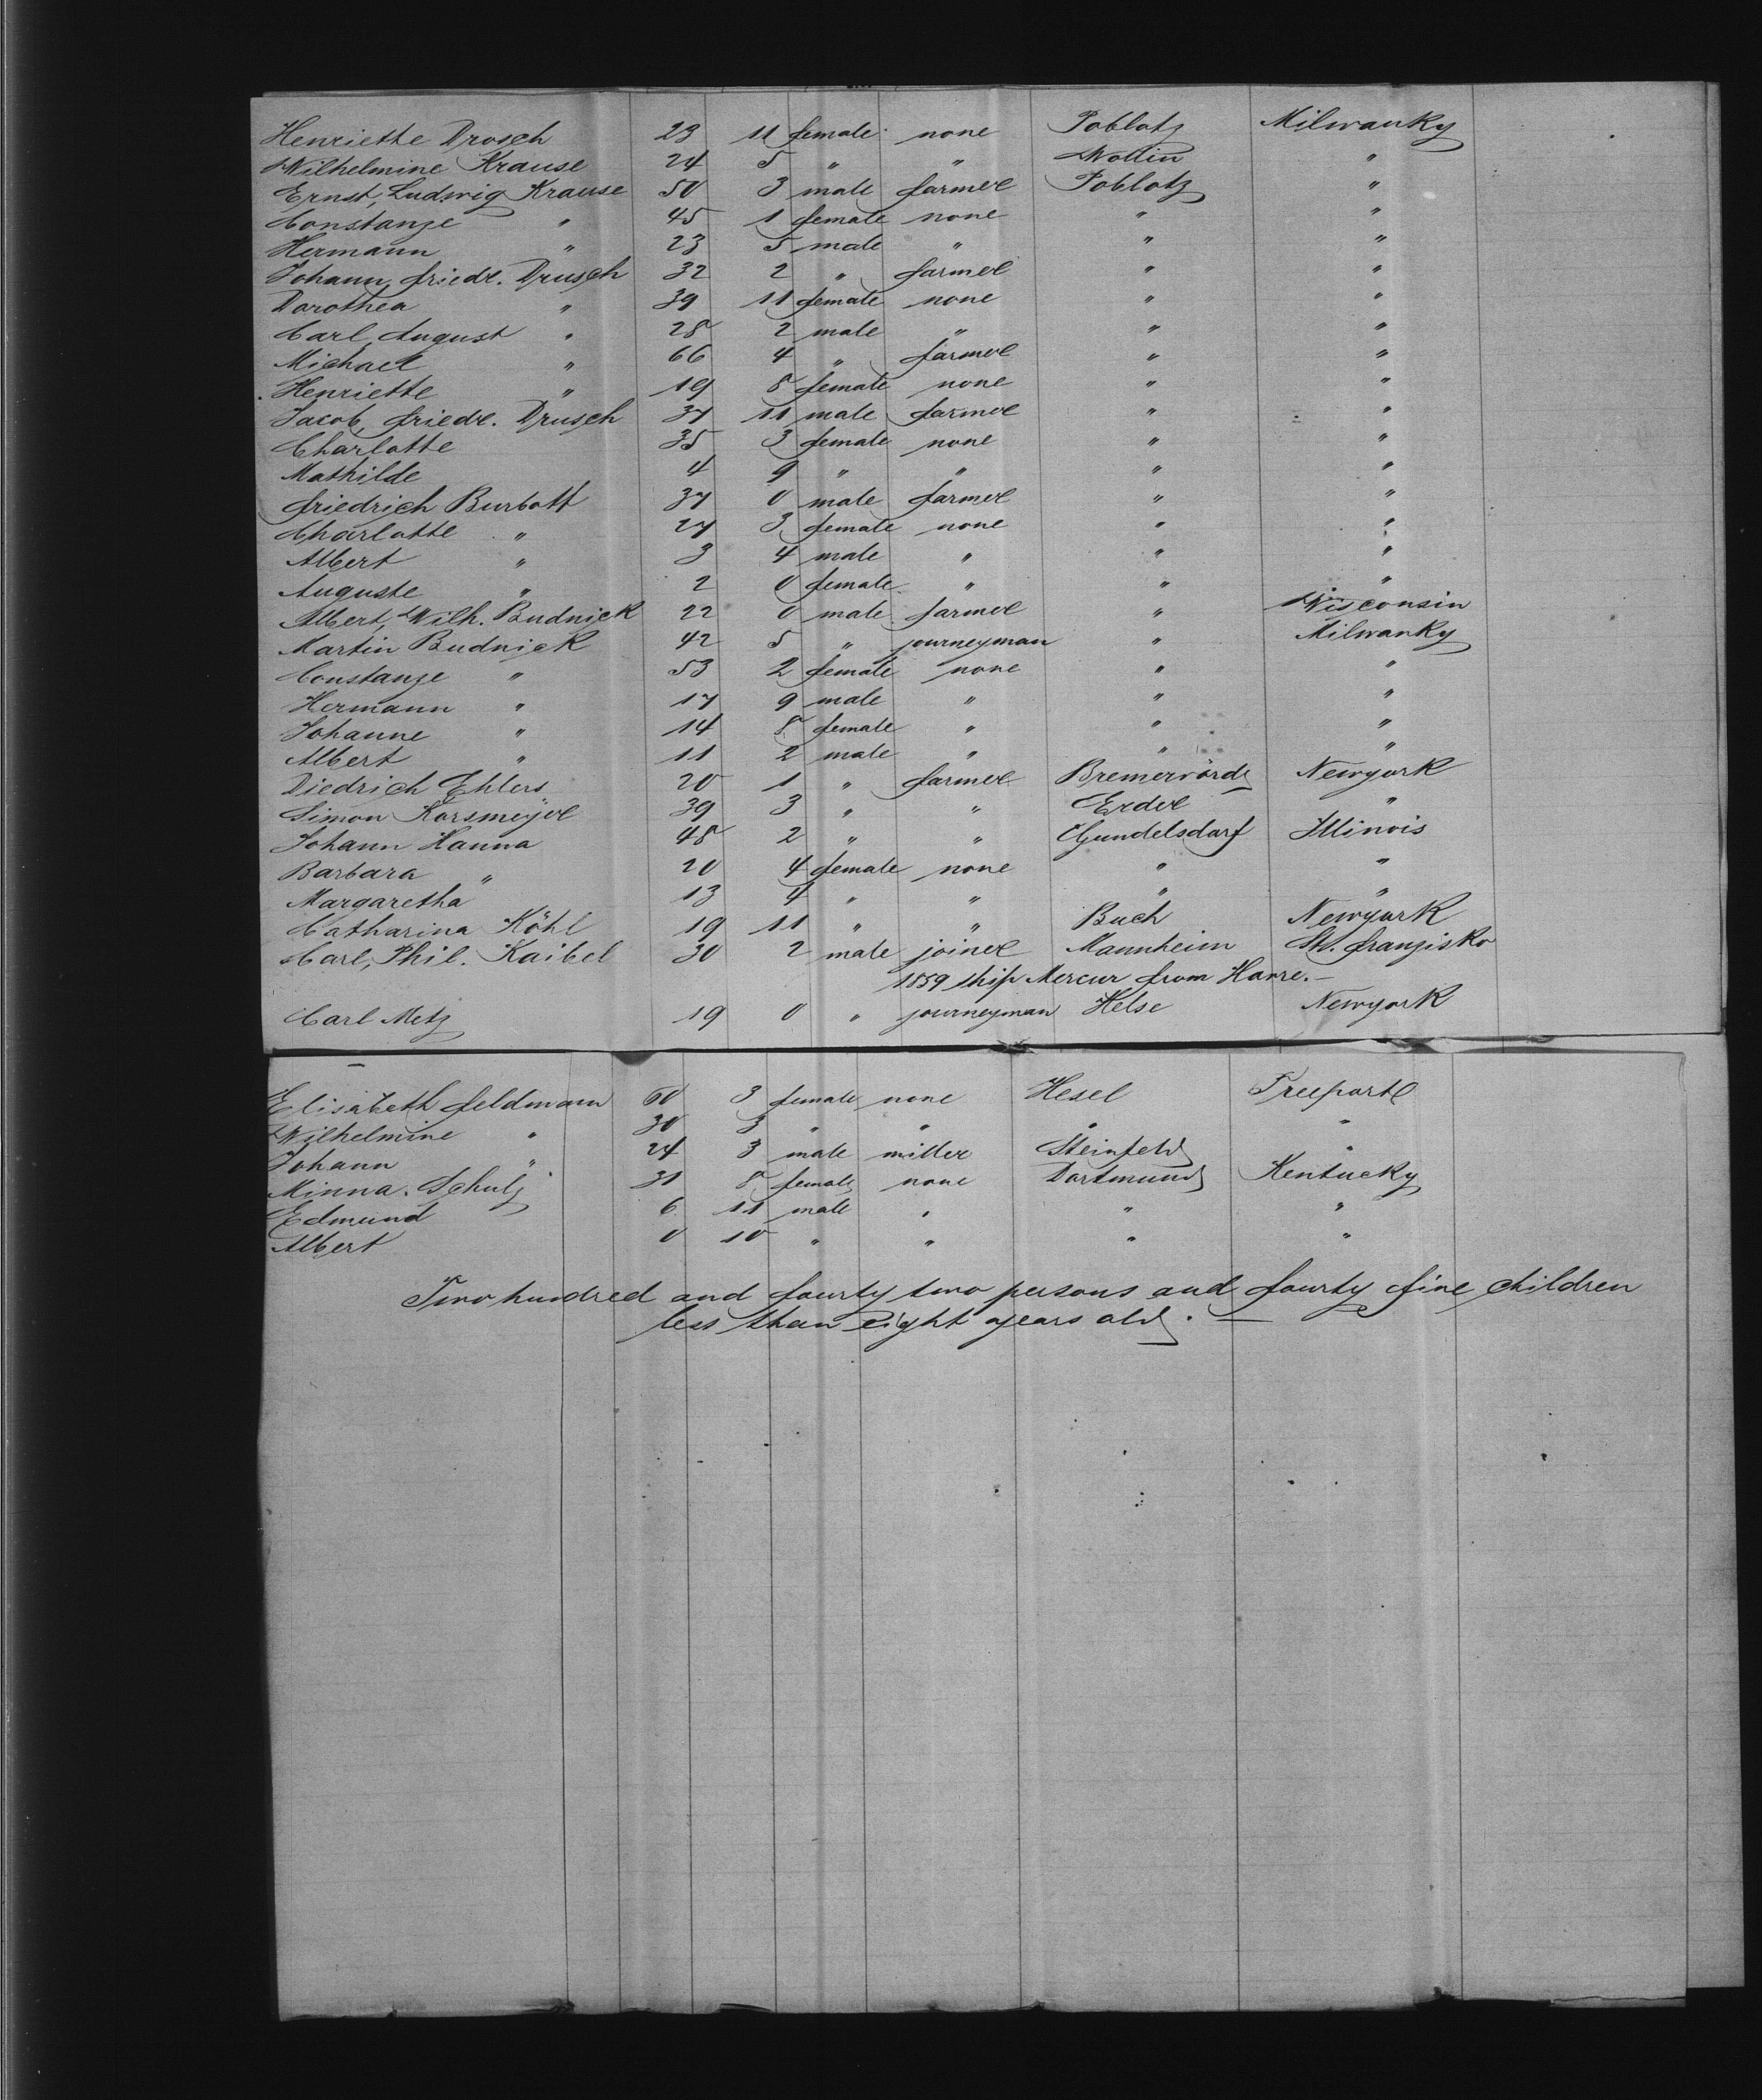 Henriette Drosch 23 11 female none Poblotz Milwauky
Wilhelmine Krause 24 5 " " Wollin "
Ernst, Ludwig Krause 50 3 male farmer Poblotz "
Constanze " 45 1 female none " "
Hermann " 23 5 male " " "
Johann, friedr. Drusch 32 2 " farmer " "
Dorothea " 39 11 female none " "
Carl, August " 28 2 male " " "
Michael " 66 4 " farmer " "
Henriette " 19 8 female none " "
Jacob, friedr. Drusch 37 11 male farmer " "
Charlotte 35 3 female none " "
Mathilde 4 9 " " " "
friedrich Burbott 37 0 male farmer " "
Charlotte " 27 3 female none " "
Albert " 3 4 male " " "
Auguste " 2 0 female " " "
Albert, Wilh. Budnick 22 0 male farmer " Wisconsin
Martin Budnick 42 5 " journeyman " Milwauky
Constanze " 53 2 female none " "
Hermann " 17 9 male " " "
Johanne " 14 8 female " " "
Albert " 11 2 male " " "
Diedrich Ehlers 20 1 " farmer Bremervörde Newyork
Simon Korsmeyer 39 3 " " Erder "
Johann Hanna 48 2 " " Gundelsdorf Illinois
Barbara " 20 4 female none " "
Margaretha 13 4 " " " "
Catharina Köhl 19 11 " " Buch Newyork
Carl, Phil. Kaibel 30 2 male joiner Mannheim St. franzisko
1859 ship Mercur from Havre. —
Carl Metz 19 0 " journeyman Helse Newyork
Elisabeth feldmann 60 3 female none Hesel Freeport
Wilhelmine " 30 3 " " " "
Johann " 24 3 male miller Steinfeld "
Minna Schulz 31 8 female none Dortmund Kentucky
Edmund 6 11 male " " "
Albert 0 10 " " " "
Two hundred and fourty two persons and fourty five children
less than eight years old. —